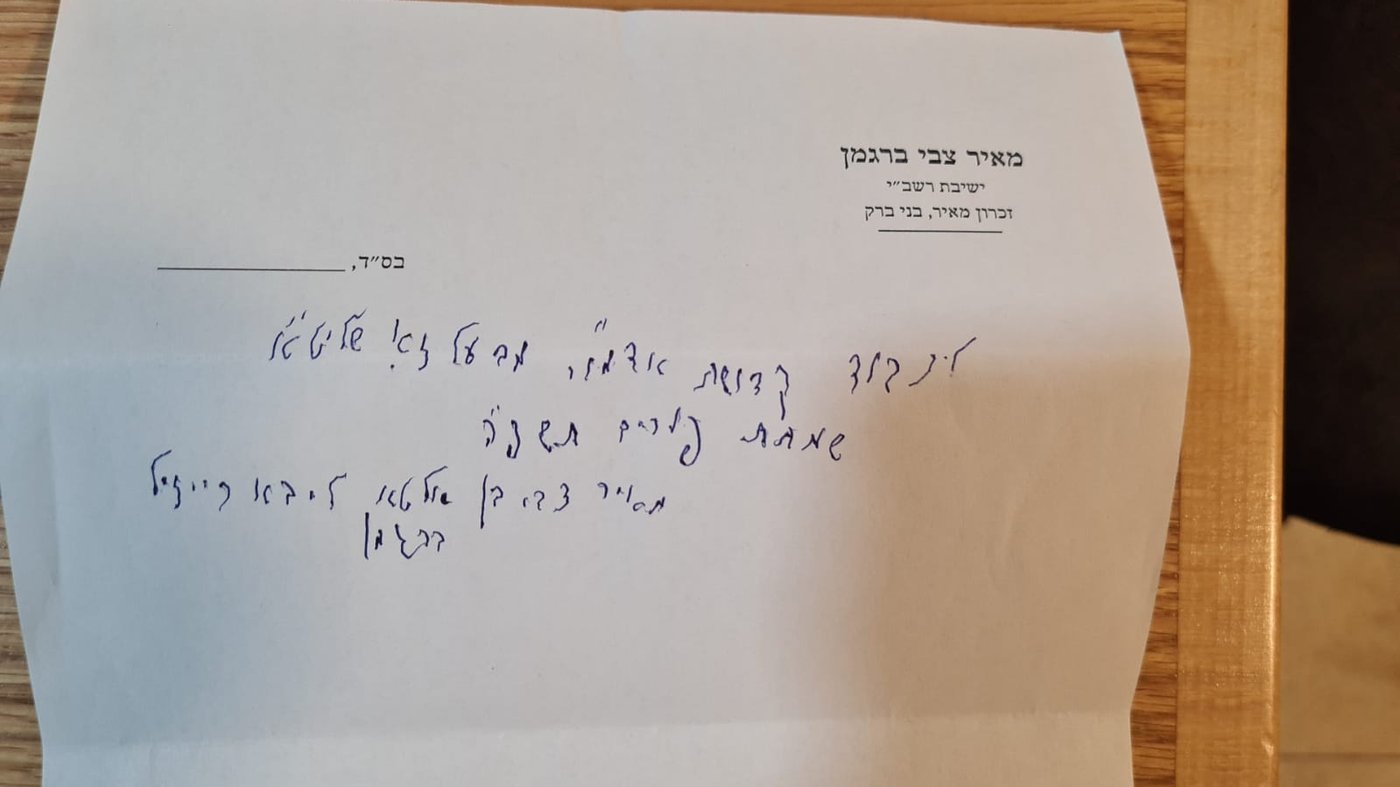 מאיר צבי ברגמן
ישיבת רשב״י
זכרון מאיר, בני ברק
בס״ד,
כבוד קדושת אדמו״ר מבעלזא שליט״א
שמחת פורים תשפ״ה
מאיר צבי בן אלטא ליבא רייזיל
ברגמן